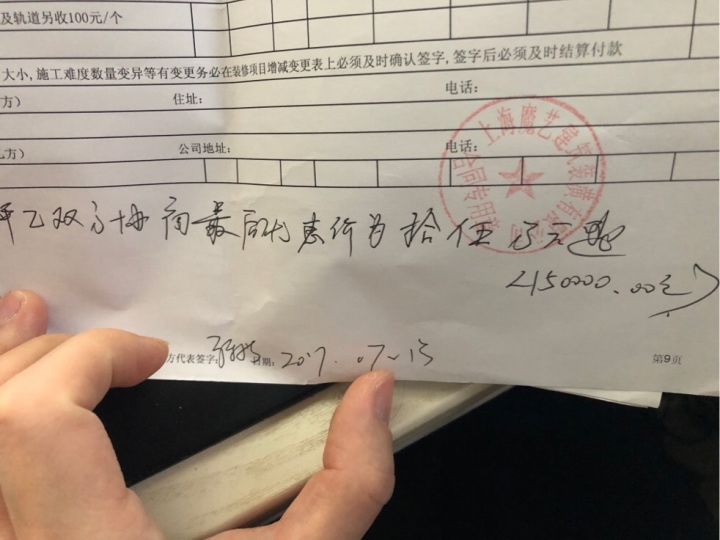 及轨道另收100元/个
大小,施工难度数量变异等有变更务必在装修项目增减变更表上必须及时确认签字,签字后必须及时结算付款
方) 住址: 电话:
乙方) 公司地址: 电话:
上海魔艺建筑装潢有限公司
合同专用章
甲乙双方协商最后优惠价为拾伍万元整
(150000.00元)
方代表签字: 日期: 2017.07.13
第9页